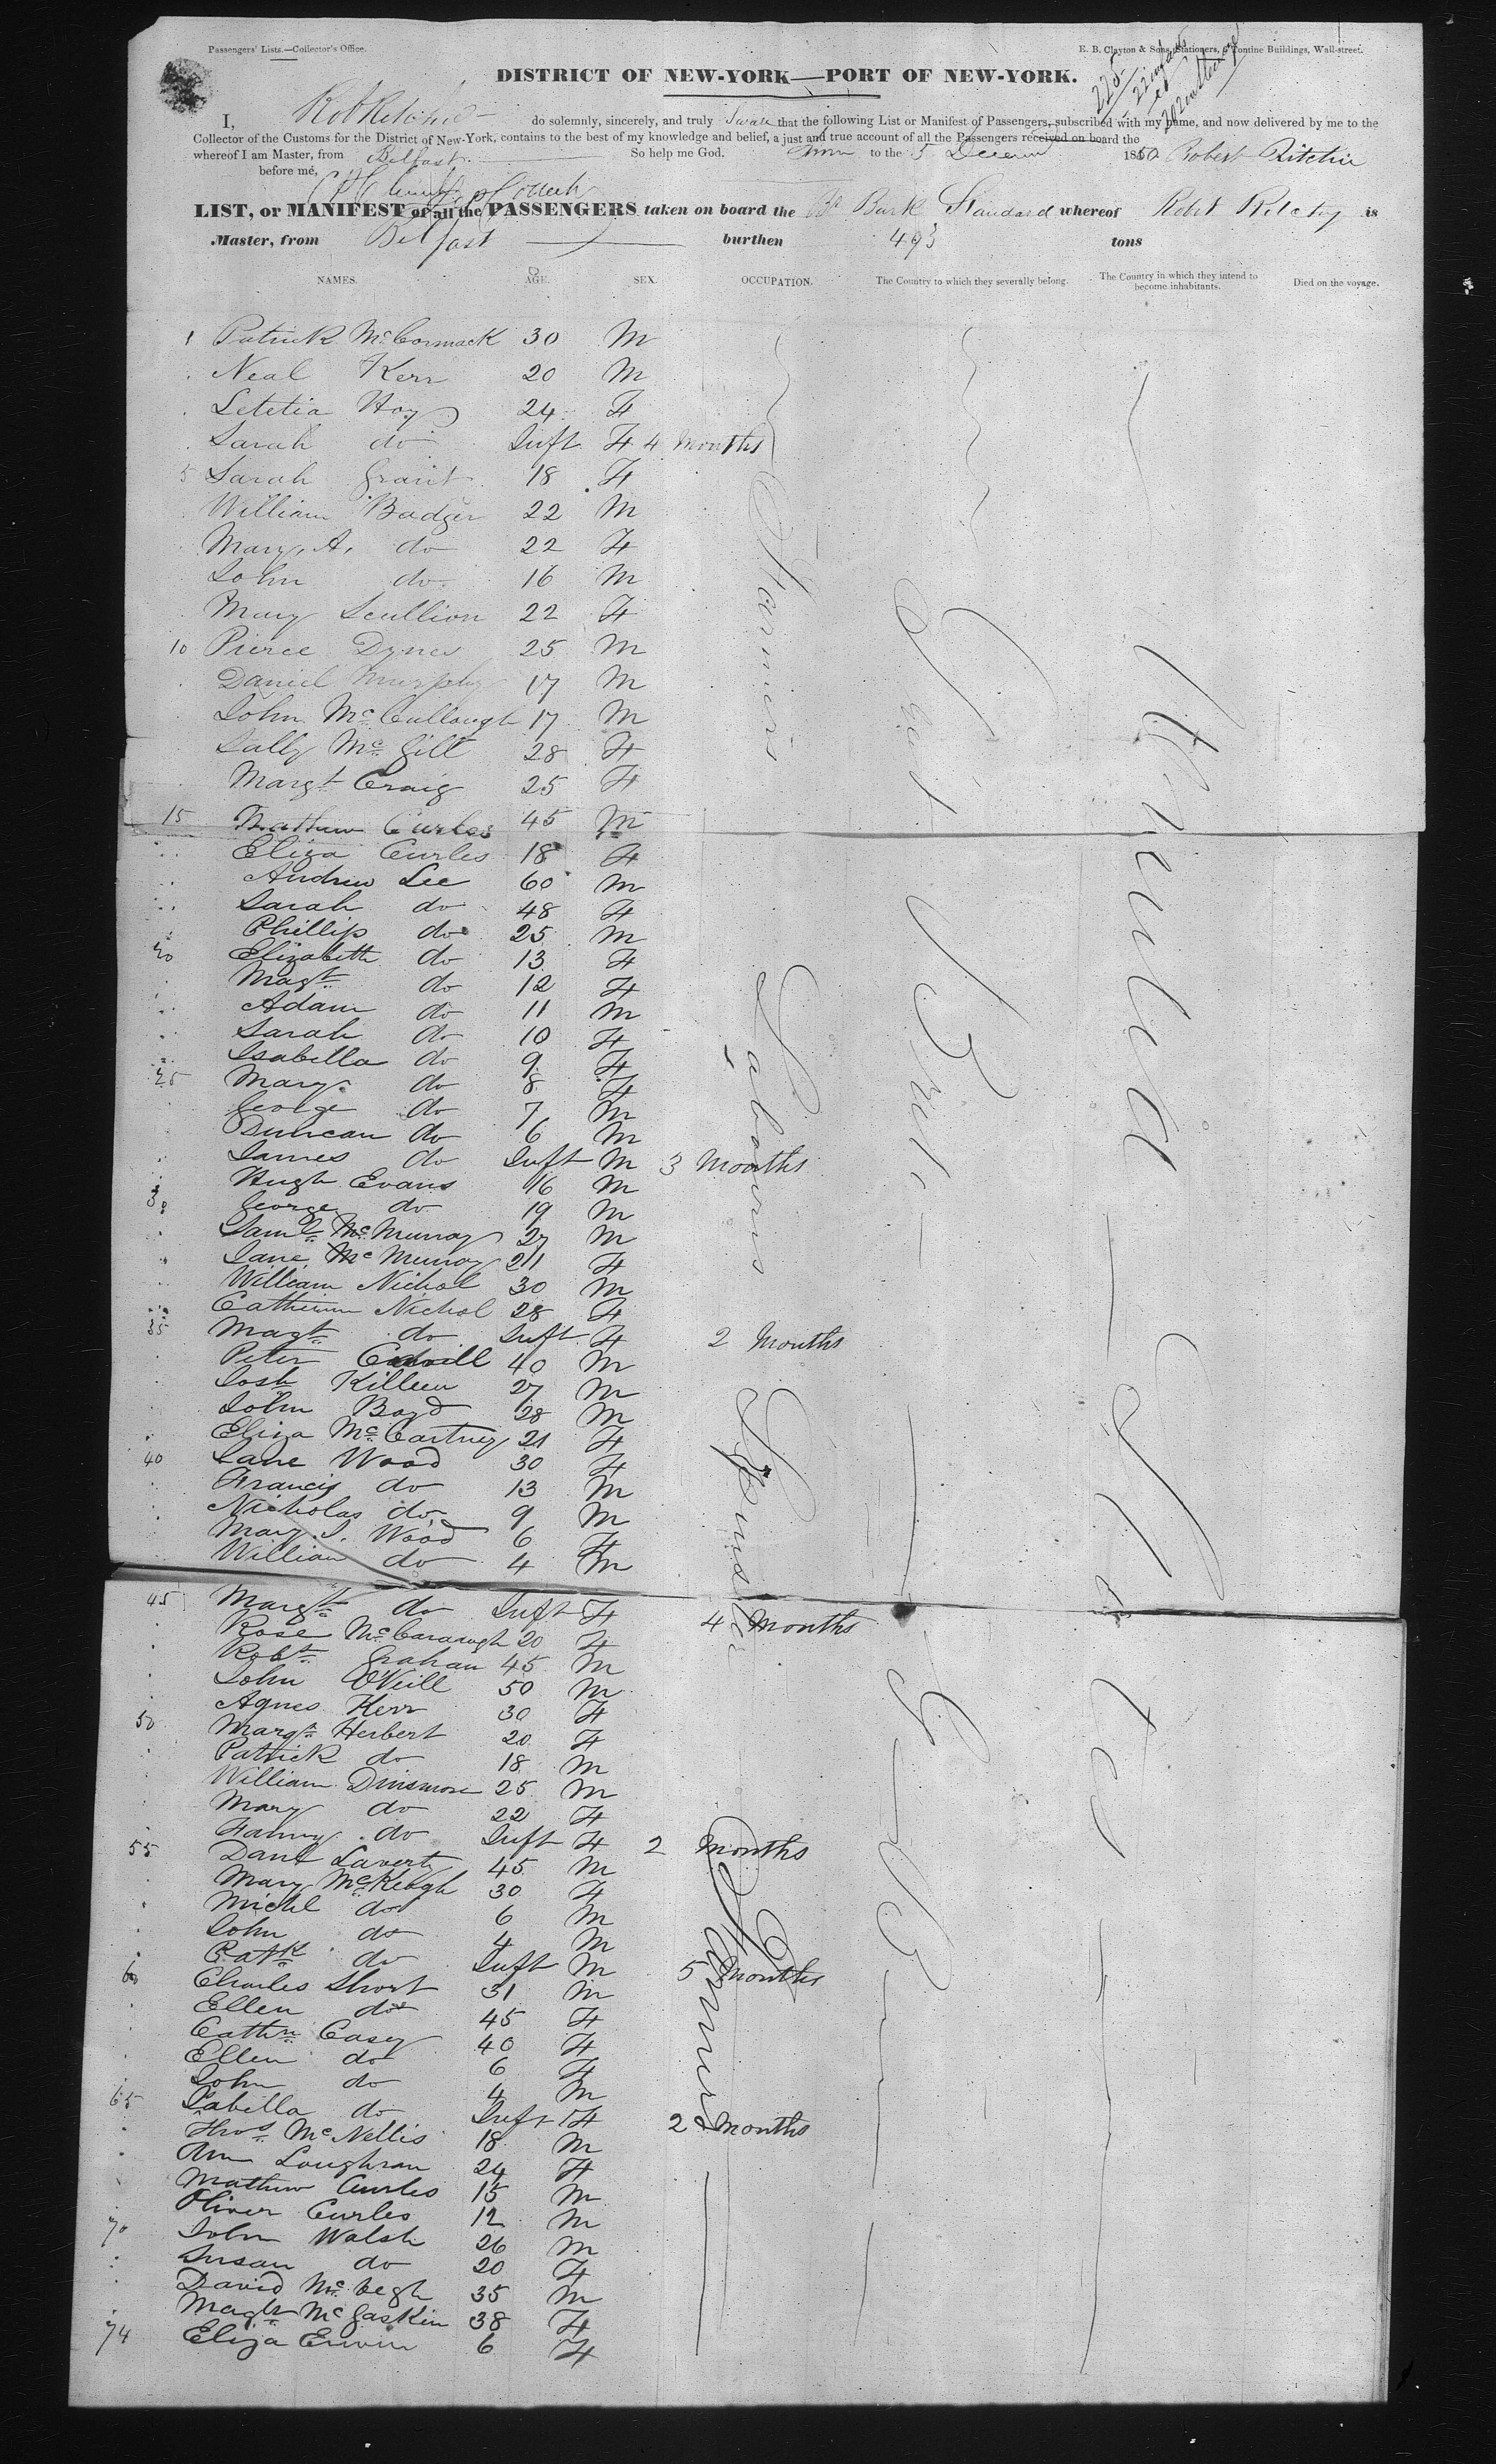 Passengers' Lists.—Collector's Office.
E. B. Clayton & Sons, Stationers, Tontine Buildings, Wall-street.
DISTRICT OF NEW-YORK—PORT OF NEW-YORK.
225
22 infants
202 in steerage
I, Rob Ritchie do solemnly, sincerely, and truly Swear that the following List or Manifest of Passengers, subscribed with my name, and now delivered by me to the
Collector of the Customs for the District of New-York, contains to the best of my knowledge and belief, a just and true account of all the Passengers received on board the
whereof I am Master, from Belfast So help me God. to the 5 December 1850 Robert Ritchie
before me,
LIST, or MANIFEST of all the PASSENGERS taken on board the Br Bark Standard whereof Robt Ritchy is
Master, from Belfast burthen 493 tons
NAMES. AGE. SEX. OCCUPATION. The Country to which they severally belong. The Country in which they intend to become inhabitants. Died on the voyage.
1 Patrick McCormack 30 M
Neal Kerr 20 M
Letetia Hoy 24 F
Sarah do Inft F 4 Months
5 Sarah Grant 18 F
William Badger 22 M
Mary A. do 22 F
John do 16 M
Mary Scullion 22 F
10 Pierce Dynes 25 M
Daniel Murphy 17 M
John McCullough 17 M
Sally McGill 28 F
Margt Craig 25 F
15 Mathew Curles 45 M
Eliza Curles 18 F
Andrew Lee 60 M
Sarah do 48 F
Phillip do 25 M
20 Elizabeth do 13 F
Magt do 12 F
Adam do 11 M
Sarah do 10 F
Isabella do 9 F
25 Mary do 8 F
George do 7 M
Duncan do 6 M
James do Inft M 3 Months
Hugh Evans 16 M
30 George do 19 M
Saml McMurray 27 M
Jane McMurray 21 F
William Nichol 30 M
Catherine Nichol 28 F
35 Magt do Inft F 2 Months
Peter 40 M
Josh Killeen 27 M
John Boyd 28 M
Eliza McCartney 21 F
40 Jane Wood 30 F
Francis do 13 M
Nicholas do 9 M
Mary J. Wood 6 F
William do 4 M
45 Margt do Inft F 4 Months
Rose McCavanagh 20 F
Robt Graham 45 M
John O'Neill 50 M
Agnes Kerr 30 F
50 Margt Herbert 20 F
Patrick do 18 M
William Dinsmore 25 M
Mary do 22 F
Fanny do Inft F 2 Months
55 Danl Laverty 45 M
Mary McKeogh 30 F
Michl do 6 M
John do 4 M
Patk do Inft M 5 Months
60 Charles Short 31 M
Ellen do 45 F
Cathn Casey 40 F
Ellen do 6 F
John do 4 M
65 Isabella do Inft F 2 Months
Thos McNellis 18 M
Ann Loughran 24 F
Mathew Curles 15 M
Oliver Curles 12 M
70 John Walsh 26 M
Susan do 20 F
David McVegh 35 M
Magt McGaskin 38 F
74 Eliza Erwin 6 F
Farmers
Labourers
Spinster
Farmers
Great Britain
United States